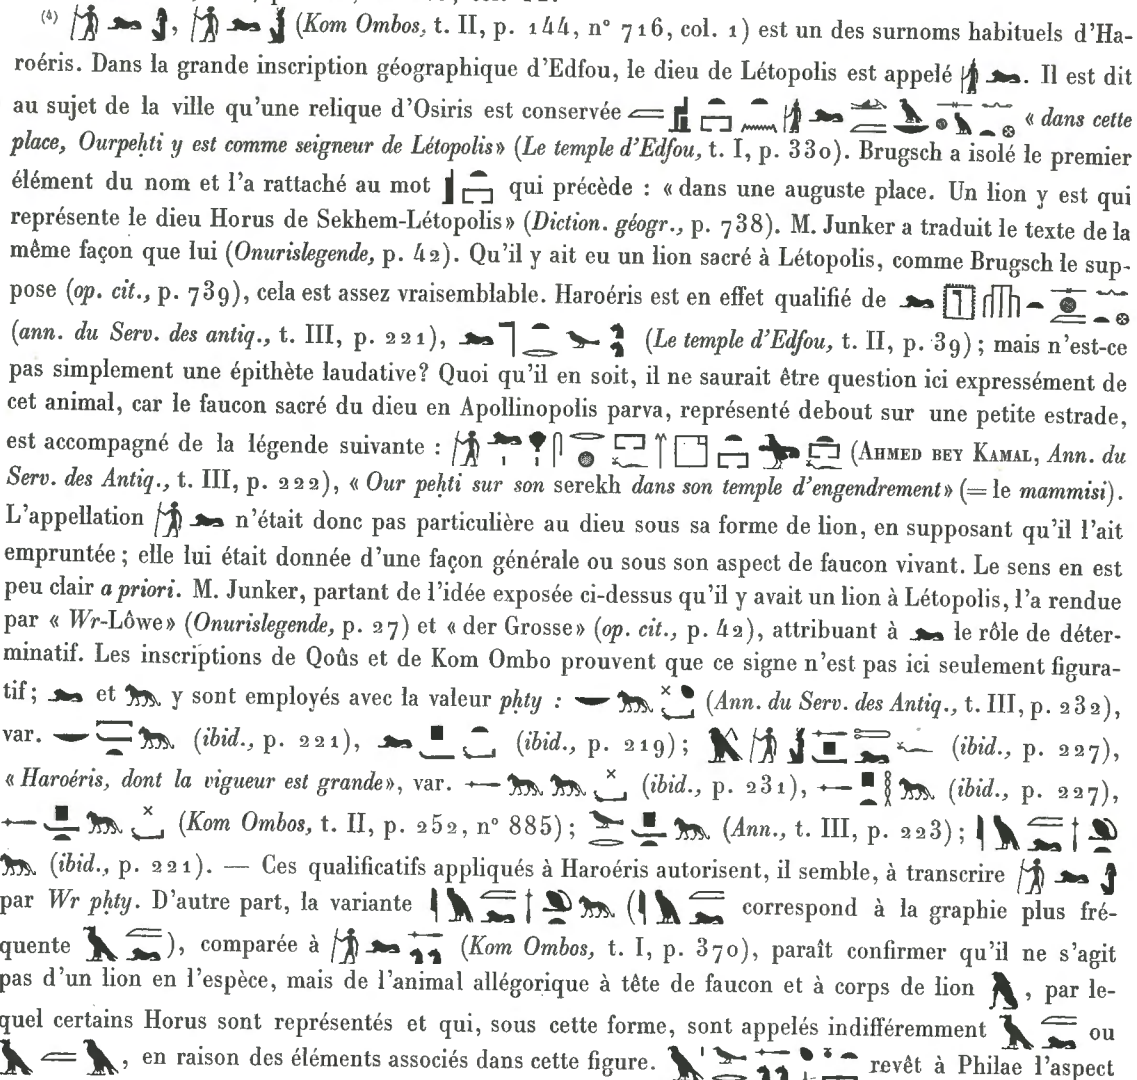 (4) , (Kom Ombos, t. II, p. 144, n° 716, col. 1) est un des surnoms habituels d'Ha-
roéris. Dans la grande inscription géographique d'Edfou, le dieu de Létopolis est appelé . Il est dit
au sujet de la ville qu'une relique d'Osiris est conservée « dans cette
place, Ourpeḥti y est comme seigneur de Létopolis» (Le temple d'Edfou, t. I, p. 330). Brugsch a isolé le premier
élément du nom et l'a rattaché au mot qui précède : « dans une auguste place. Un lion y est qui
représente le dieu Horus de Sekhem-Létopolis» (Diction. géogr., p. 738). M. Junker a traduit le texte de la
même façon que lui (Onurislegende, p. 42). Qu'il y ait eu un lion sacré à Létopolis, comme Brugsch le sup-
pose (op. cit., p. 739), cela est assez vraisemblable. Haroéris est en effet qualifié de
(ann. du Serv. des antiq., t. III, p. 221), (Le temple d'Edfou, t. II, p. 39) ; mais n'est-ce
pas simplement une épithète laudative? Quoi qu'il en soit, il ne saurait être question ici expressément de
cet animal, car le faucon sacré du dieu en Apollinopolis parva, représenté debout sur une petite estrade,
est accompagné de la légende suivante : (Ahmed bey Kamal, Ann. du
Serv. des Antiq., t. III, p. 222), « Our peḥti sur son serekh dans son temple d'engendrement» (= le mammisi).
L'appellation n'était donc pas particulière au dieu sous sa forme de lion, en supposant qu'il l'ait
empruntée ; elle lui était donnée d'une façon générale ou sous son aspect de faucon vivant. Le sens en est
peu clair a priori. M. Junker, partant de l'idée exposée ci-dessus qu'il y avait un lion à Létopolis, l'a rendue
par « Wr-Lôwe» (Onurislegende, p. 27) et « der Grosse» (op. cit., p. 42), attribuant à le rôle de déter-
minatif. Les inscriptions de Qoûs et de Kom Ombo prouvent que ce signe n'est pas ici seulement figura-
tif ; et y sont employés avec la valeur pḥty : (Ann. du Serv. des Antiq., t. III, p. 232),
var. (ibid., p. 221), (ibid., p. 219) ; (ibid., p. 227),
« Haroéris, dont la vigueur est grande», var. (ibid., p. 231), (ibid., p. 227),
(Kom Ombos, t. II, p. 252, n° 885) ; (Ann., t. III, p. 223) ;
(ibid., p. 221). — Ces qualificatifs appliqués à Haroéris autorisent, il semble, à transcrire
par Wr pḥty. D'autre part, la variante ( correspond à la graphie plus fré-
quente ), comparée à (Kom Ombos, t. I, p. 370), paraît confirmer qu'il ne s'agit
pas d'un lion en l'espèce, mais de l'animal allégorique à tête de faucon et à corps de lion , par le-
quel certains Horus sont représentés et qui, sous cette forme, sont appelés indifféremment ou
, en raison des éléments associés dans cette figure. revêt à Philae l'aspect